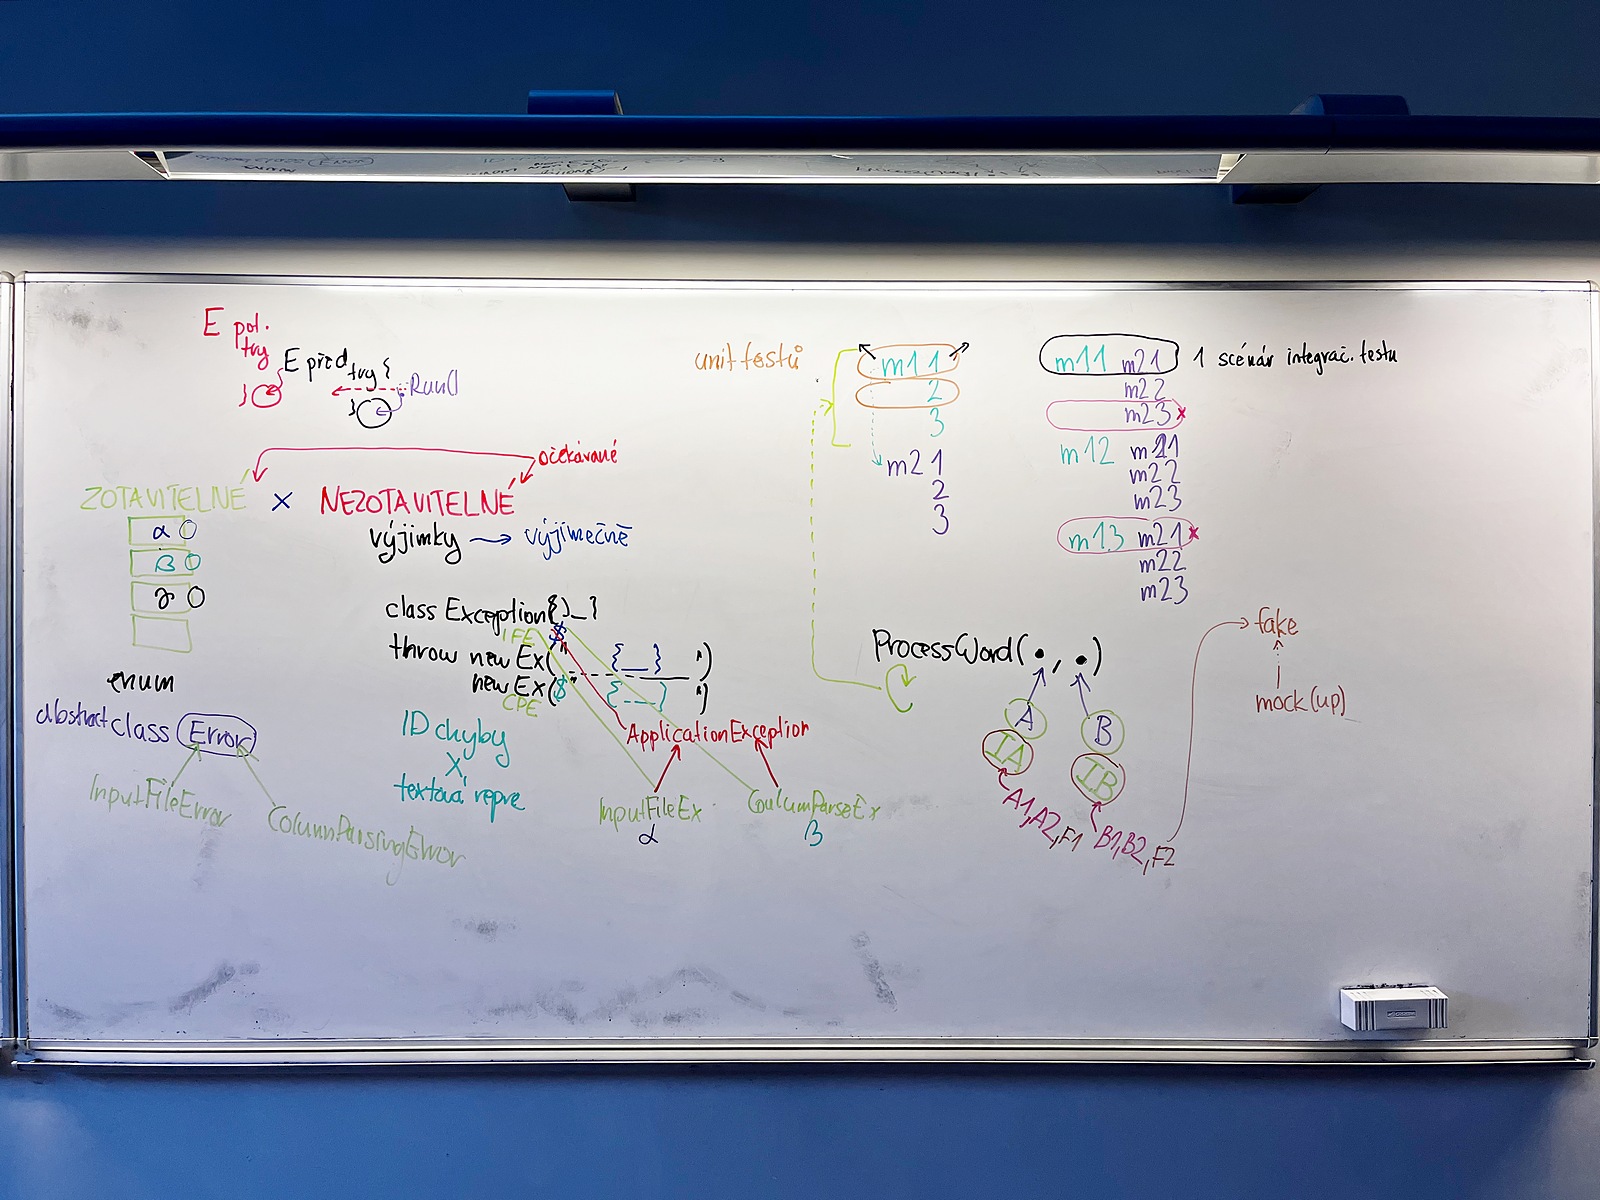 E pol.
try
}
E před
try {
}
Run()
očekávané
ZOTAVITELNÉ × NEZOTAVITELNÉ
výjimky → výjimečně
α
β
γ
enum
abstract class Error
InputFileError
ColumnParsingError
class Exception{ }
IFE
throw new Ex($" {__} ")
new Ex($" {__} ")
CPE
ID chyby
×
textová repre
ApplicationException
InputFileEx
α
CoulumParseEx
β
unit testů
m1 1
2
3
m2 1
2
3
m11 m21 1 scénář integrač. testu
m22
m23 x
m12 m21
m22
m23
m13 m21 x
m22
m23
ProcessWord(•, •)
A B
IA IB
A1,A2,F1 B1,B2,F2
fake
mock(up)